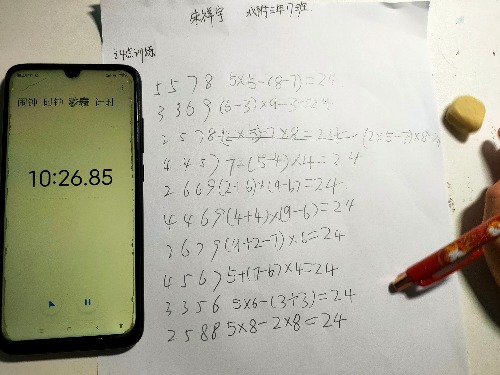 24点训练
闹钟 时钟 秒表 计时
10:26.85
5 5 7 8 5×5-(8-7)=24
3 3 6 9 (6-3)×9-3=24
2 5 7 8 (2×5-7)×8=24
4 4 5 7 7+(5-4)×4=24
2 6 6 9
4 4 6 9 (4+4)×(9-6)=24
2 6 7 9 (9+2-7)×6=24
4 5 6 7 5+(7-6)×4=24
3 3 5 6 5×6-(3+3)=24
2 5 8 8 5×8-2×8=24